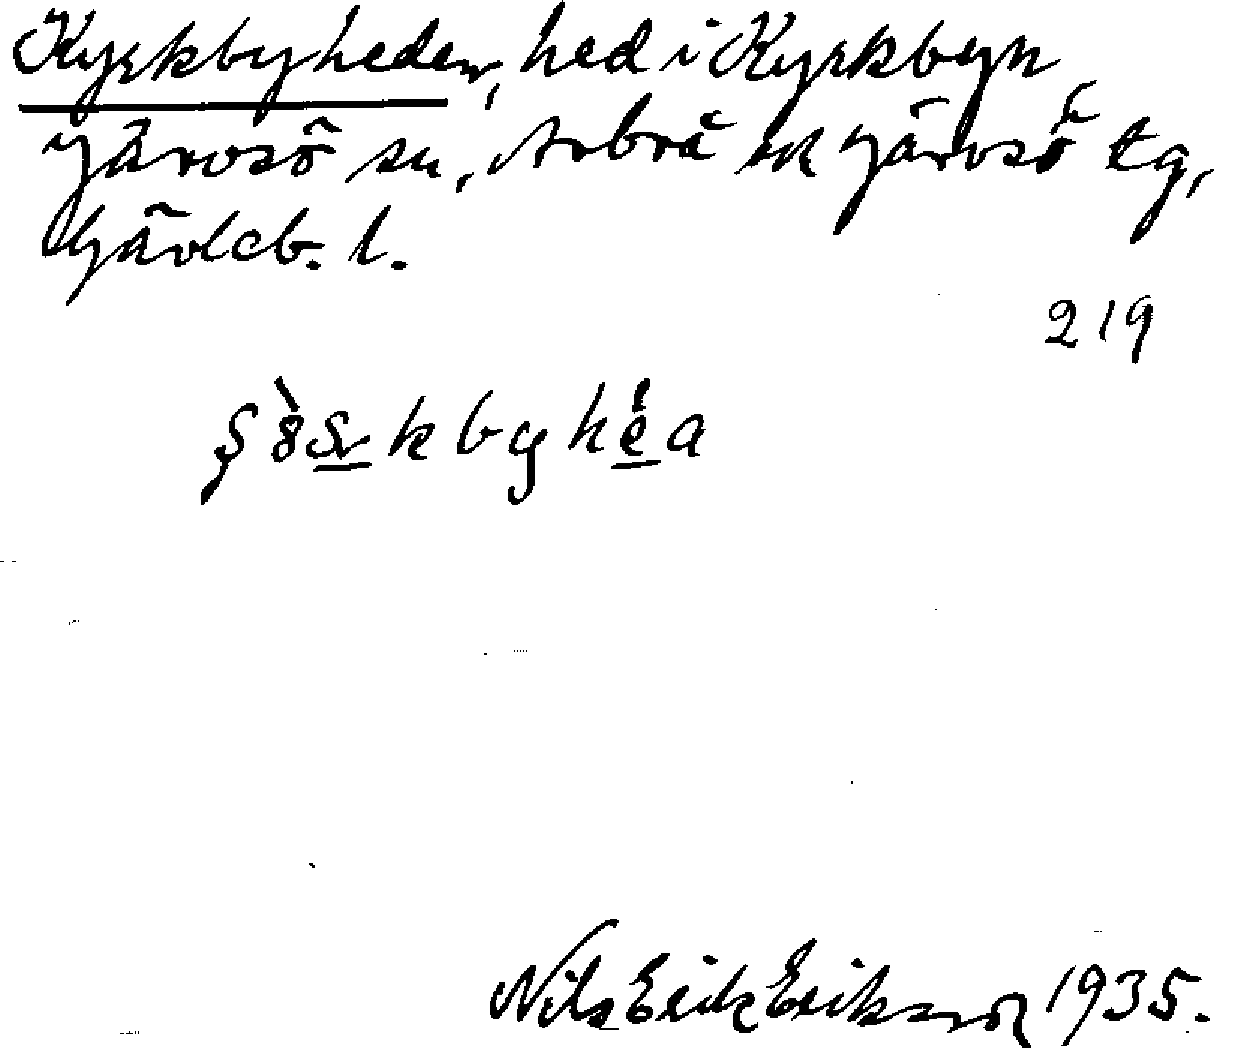 Kyrkbyheden, hed i Kyrkbyn
Järvsö sn, Arbrå och Järvsö tg,
Gävleb. l.
219
Nils Erik Eriksson 1935.